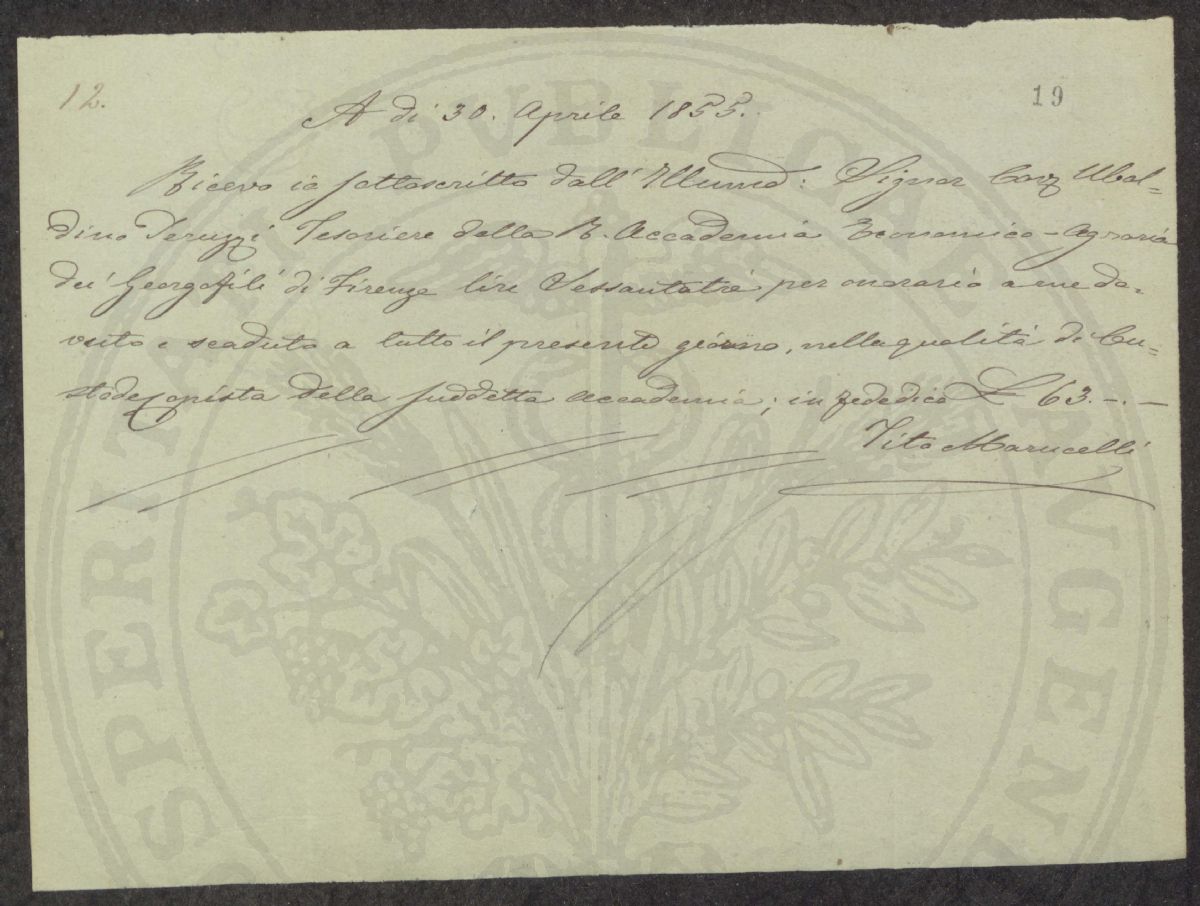 12.
19
A dì 30. Aprile 1855.
Ricevo io sottoscritto dall' Illumo: Signor Cavr Ubal=
dino Peruzzi Tesoriere della R. Accademia Economico-Agraria
dei Georgofili di Firenze lire Sessantatrè per onorario a me do-
vuto e scaduto a tutto il presente giorno, nella qualità di Cu=
stode Copista della suddetta Accademia; in fede dico £ 63.-.-
Vito Marucelli
PROSPERITATI PUBLICAE AVGENDAE